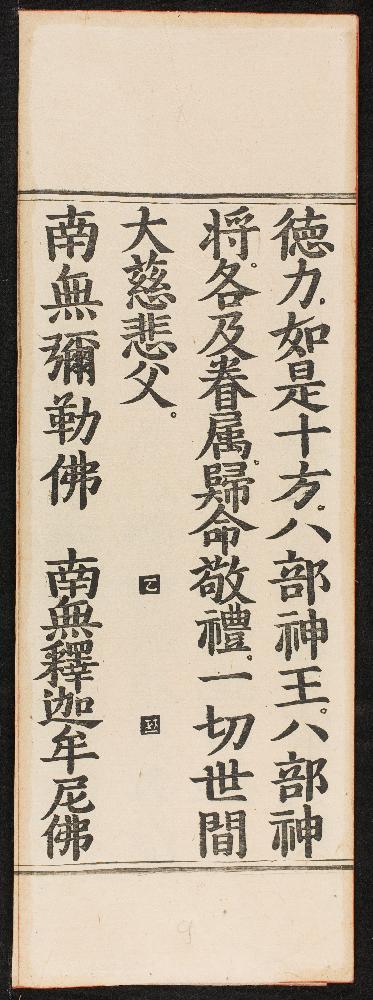 德力如是十方。八部神王。八部神
将。各及眷属。歸命敬禮。一切世間
大慈悲父。
南無彌勒佛　南無釋迦牟尼佛
9